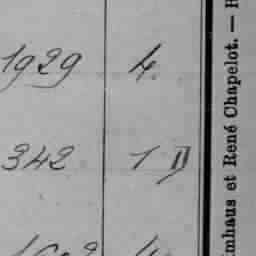 1929 4.
342 1 D
mhaus et René Chapelot. —